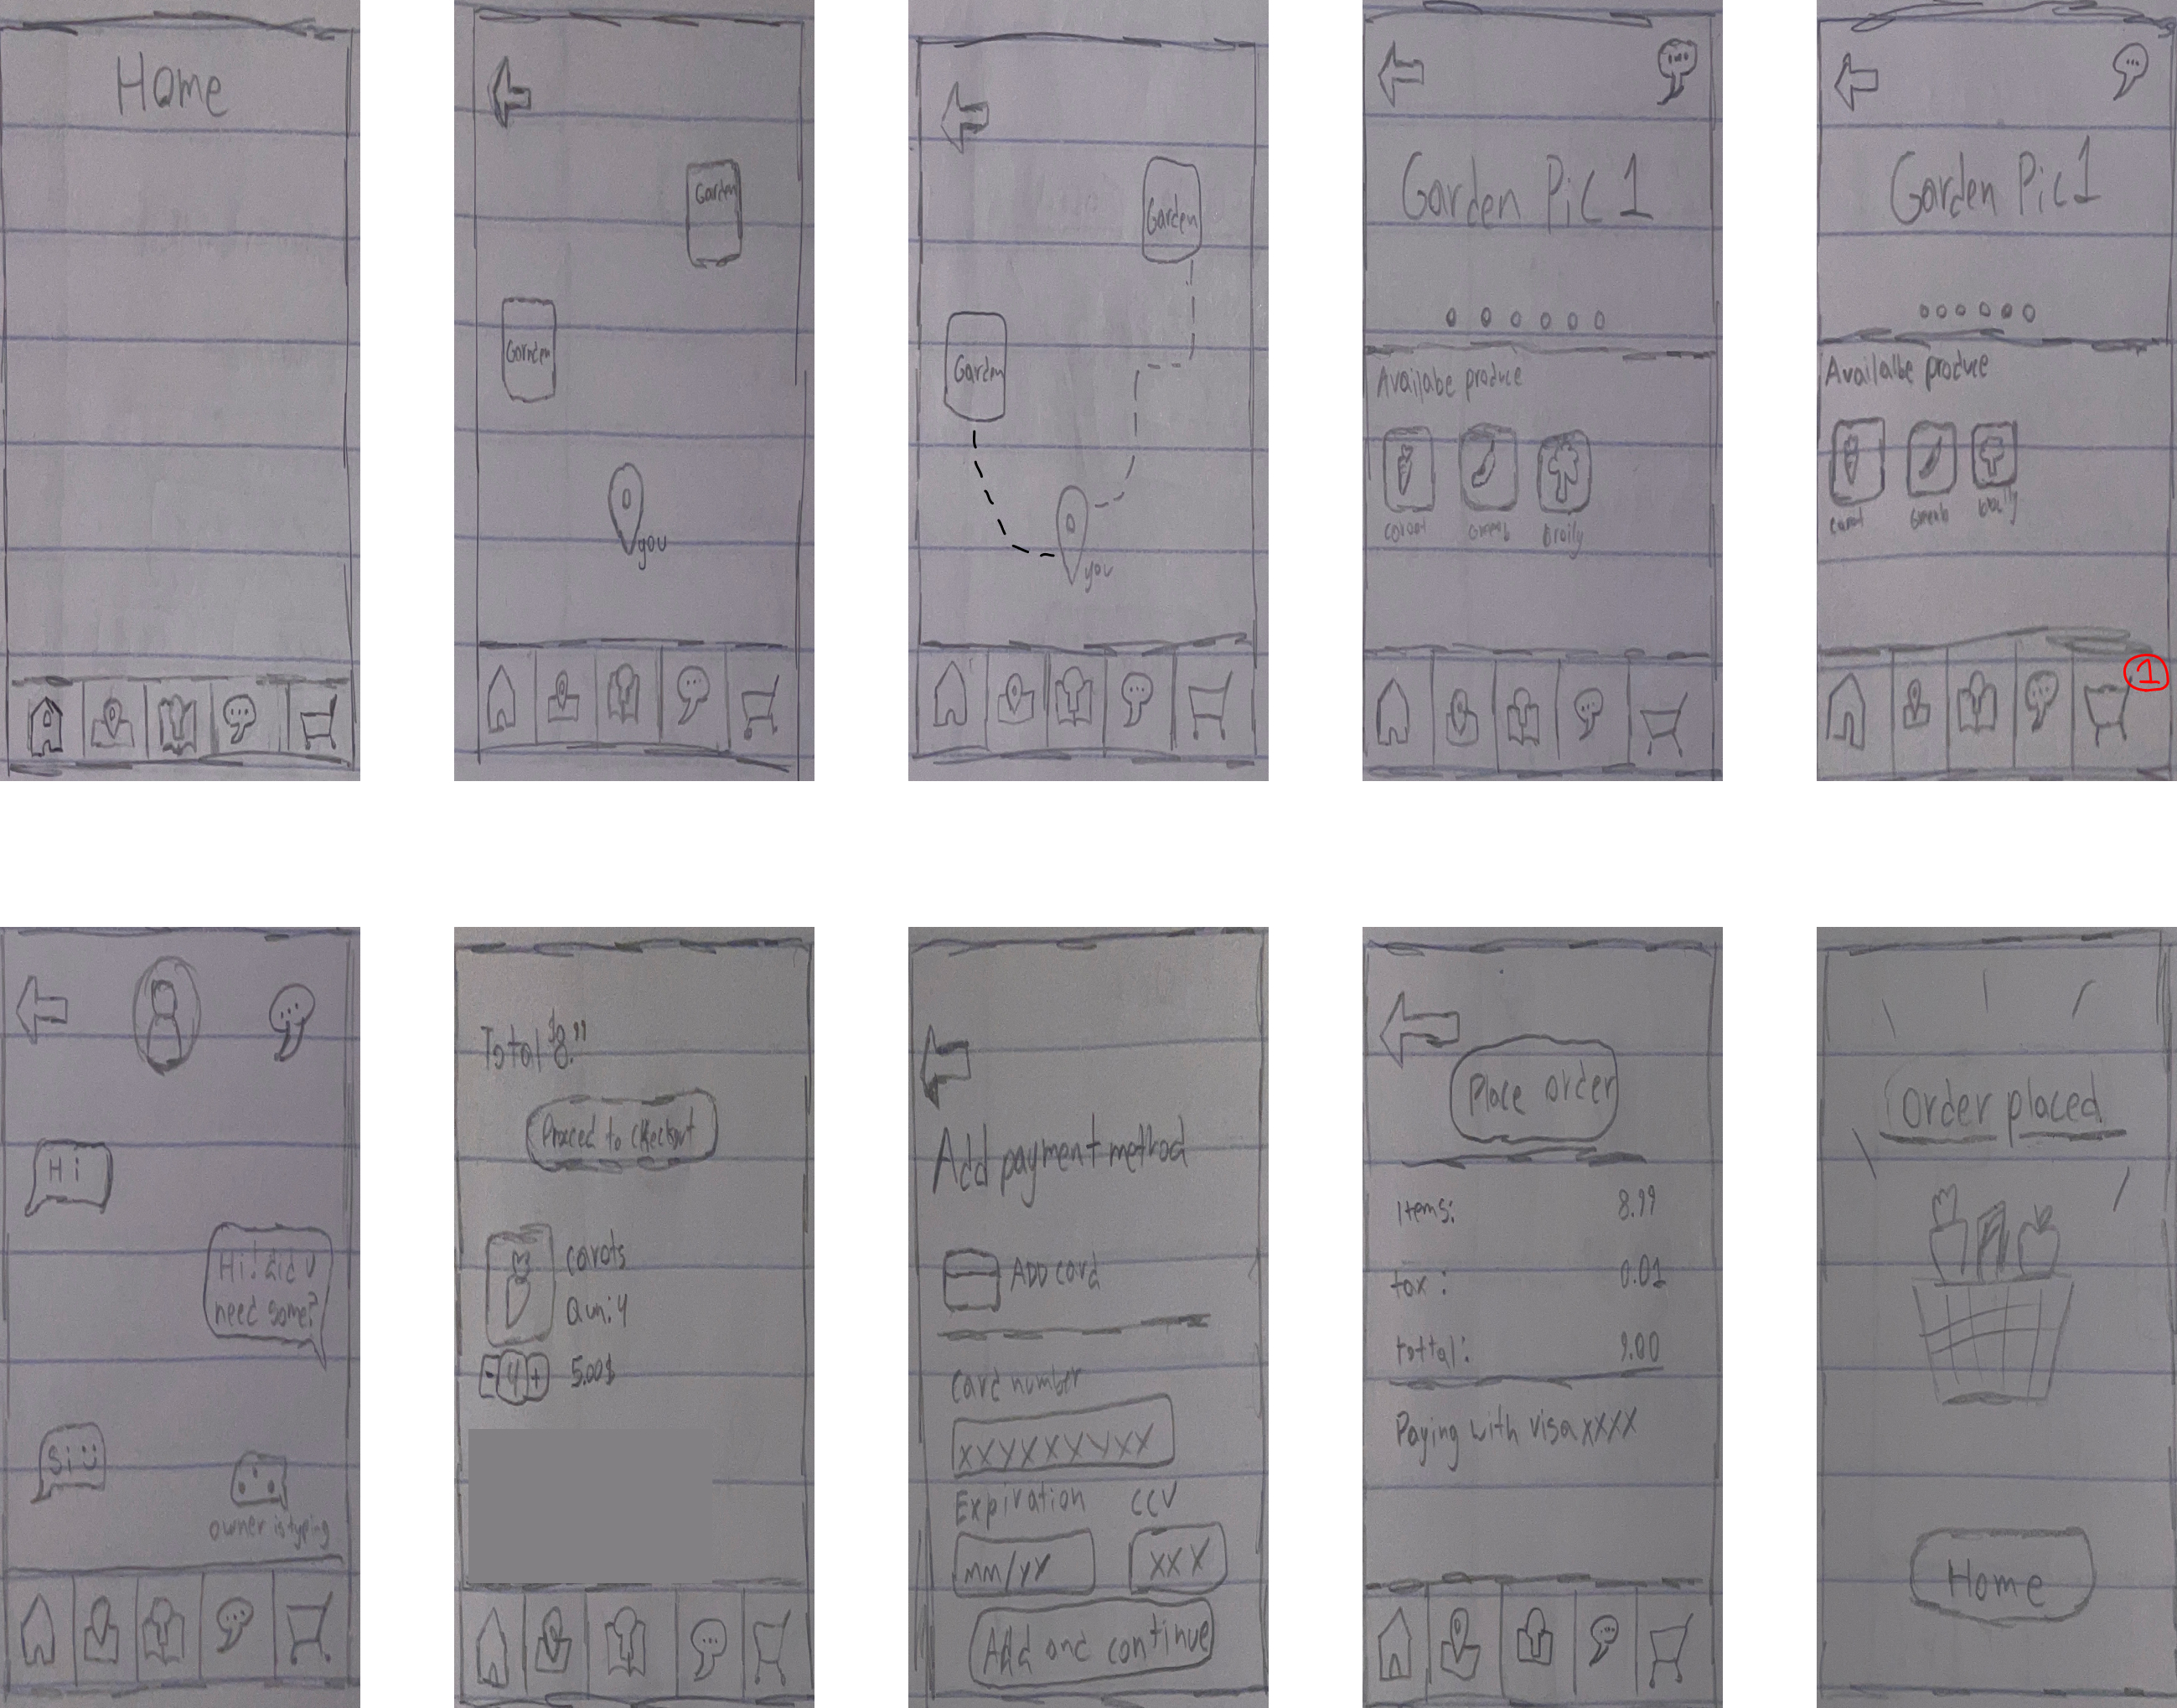 Home
Garden
Garden
you
Garden
Garden
you
Garden Pic 1
Availabe produce
Garden Pic 1
Availalbe produce
1
Hi
Hi! did u
need some?
Si
owner is typing
Total $8.99
Proceed to checkout
carots
Qun:4
- 4 + 5.00$
Add payment method
ADD card
card number
XXXXXXXXX
Expiration CCV
mm/yy XXX
Add and continue
Place order
Items: 8.99
tax: 0.01
tottal: 9.00
Paying with visa XXXX
Order placed
Home